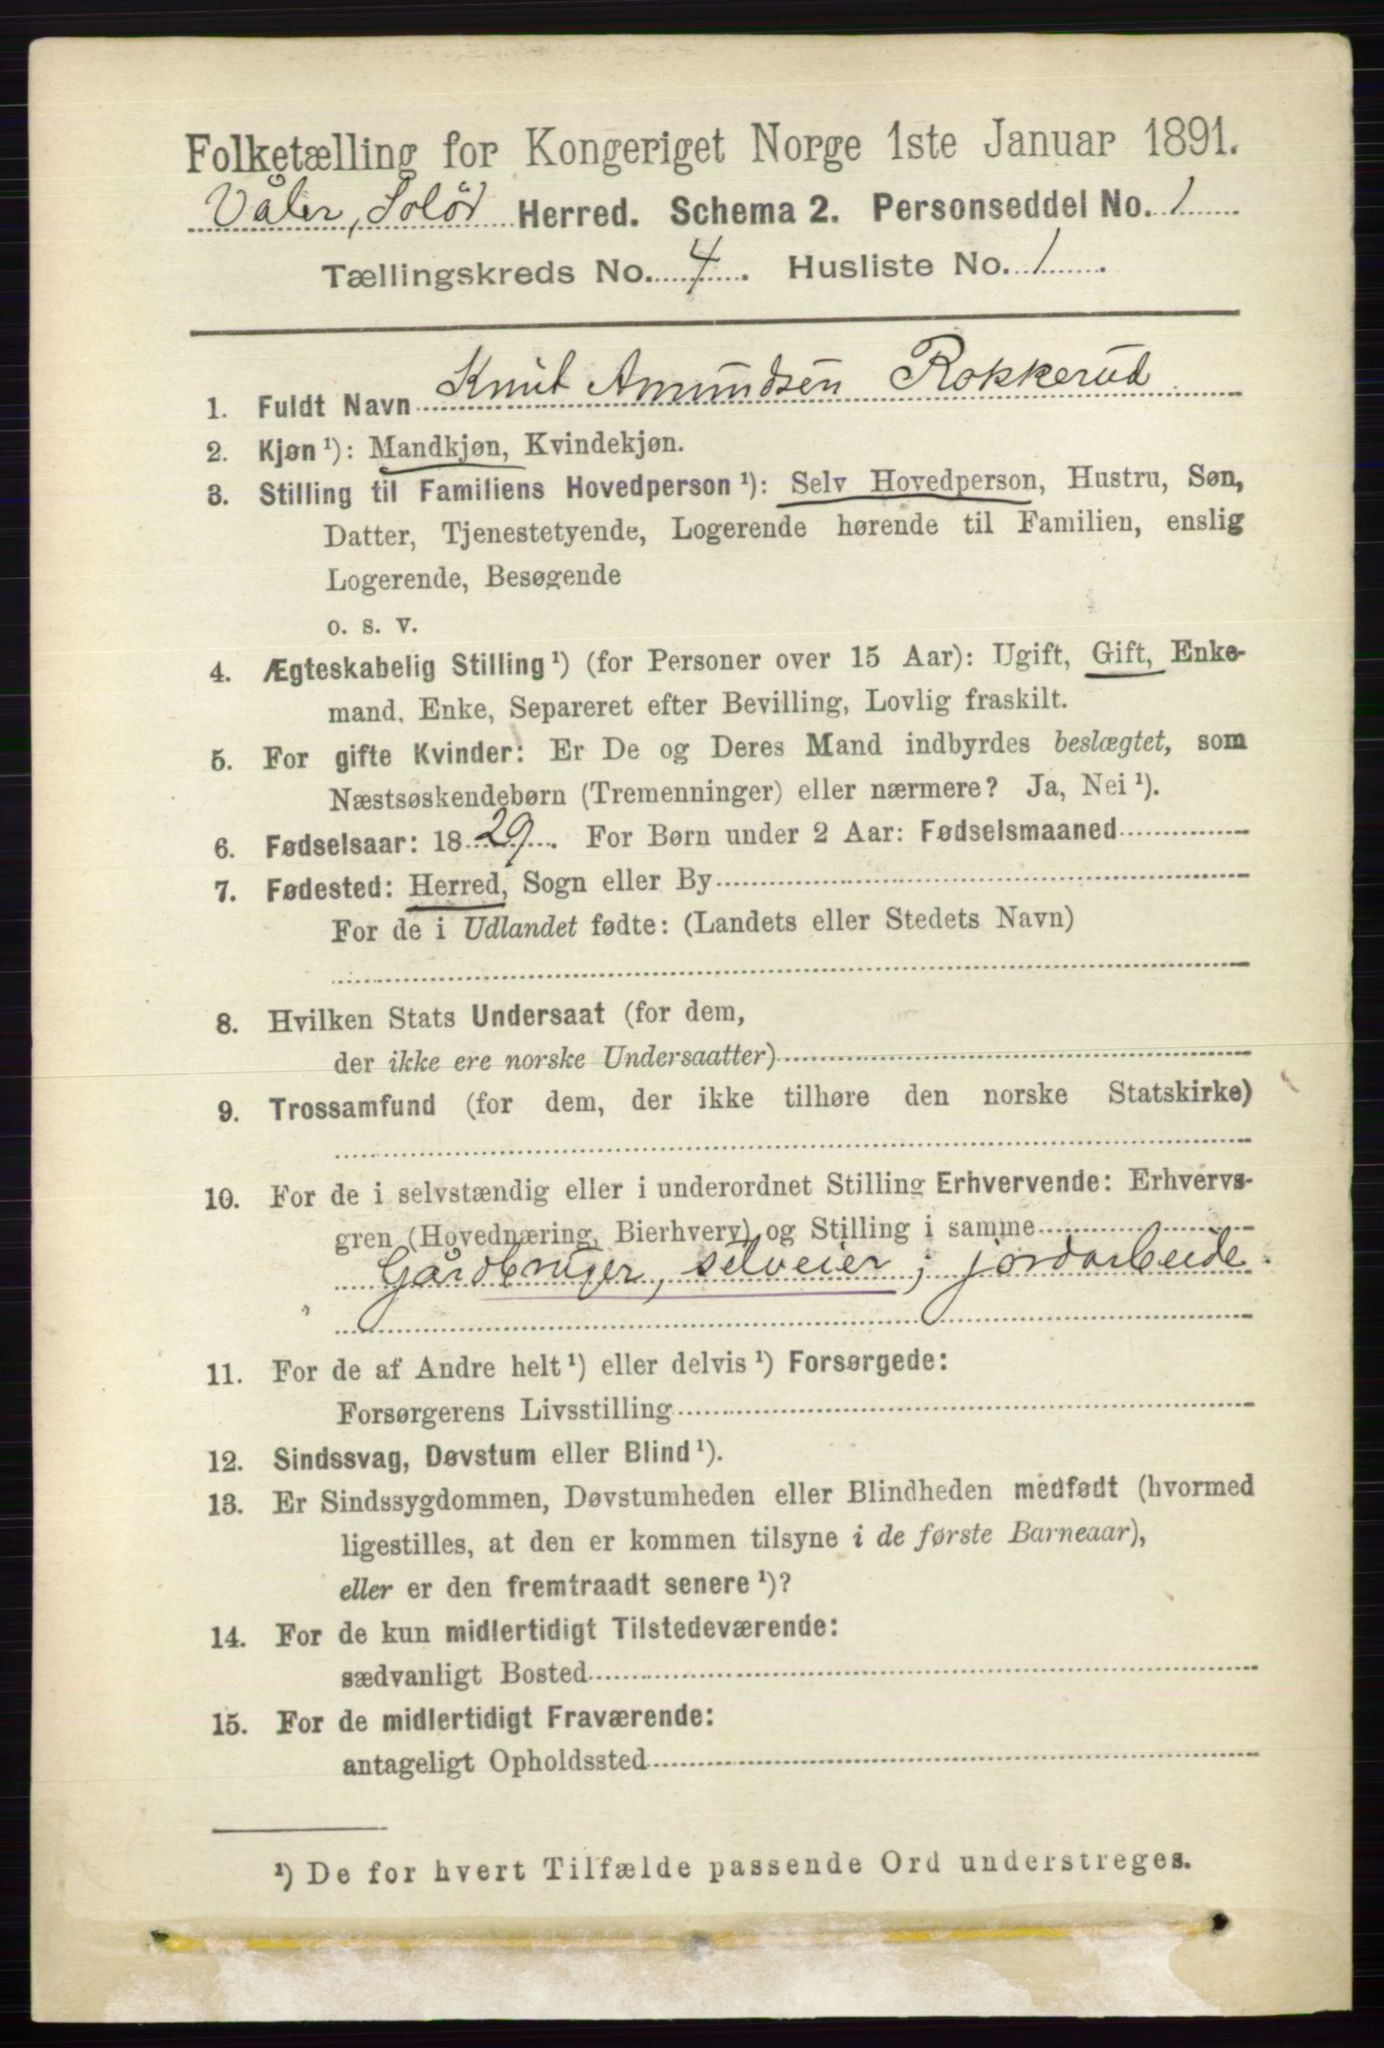 Folketælling for Kongeriget Norge 1ste Januar 1891.
Våler, Solör Herred. Schema 2. Personseddel No. 1
Tællingskreds No. 4. Husliste No. 1.
1. Fuldt Navn Knut Amundsen Rokkerud
2. Kjøn ¹): Mandkjøn, Kvindekjøn.
3. Stilling til Familiens Hovedperson ¹): Selv Hovedperson, Hustru, Søn,
Datter, Tjenestetyende, Logerende hørende til Familien, enslig
Logerende, Besøgende
o. s. v.
4. Ægteskabelig Stilling ¹) (for Personer over 15 Aar): Ugift, Gift, Enke-
mand, Enke, Separeret efter Bevilling, Lovlig fraskilt.
5. For gifte Kvinder: Er De og Deres Mand indbyrdes beslægtet, som
Næstsøskendebørn (Tremenninger) eller nærmere? Ja, Nei ¹).
6. Fødselsaar: 1829. For Børn under 2 Aar: Fødselsmaaned
7. Fødested: Herred, Sogn eller By
For de i Udlandet fødte: (Landets eller Stedets Navn)
8. Hvilken Stats Undersaat (for dem,
der ikke ere norske Undersaatter)
9. Trossamfund (for dem, der ikke tilhøre den norske Statskirke)
10. For de i selvstændig eller i underordnet Stilling Erhvervende: Erhvervs-
gren (Hovednæring, Bierhverv) og Stilling i samme
Gårdbruger, selveier; jordarbeide.
11. For de af Andre helt ¹) eller delvis ¹) Forsørgede:
Forsørgerens Livsstilling
12. Sindssvag, Døvstum eller Blind ¹).
13. Er Sindssygdommen, Døvstumheden eller Blindheden medfødt (hvormed
ligestilles, at den er kommen tilsyne i de første Barneaar),
eller er den fremtraadt senere ¹)?
14. For de kun midlertidigt Tilstedeværende:
sædvanligt Bosted
15. For de midlertidigt Fraværende:
antageligt Opholdssted
¹) De for hvert Tilfælde passende Ord understreges.